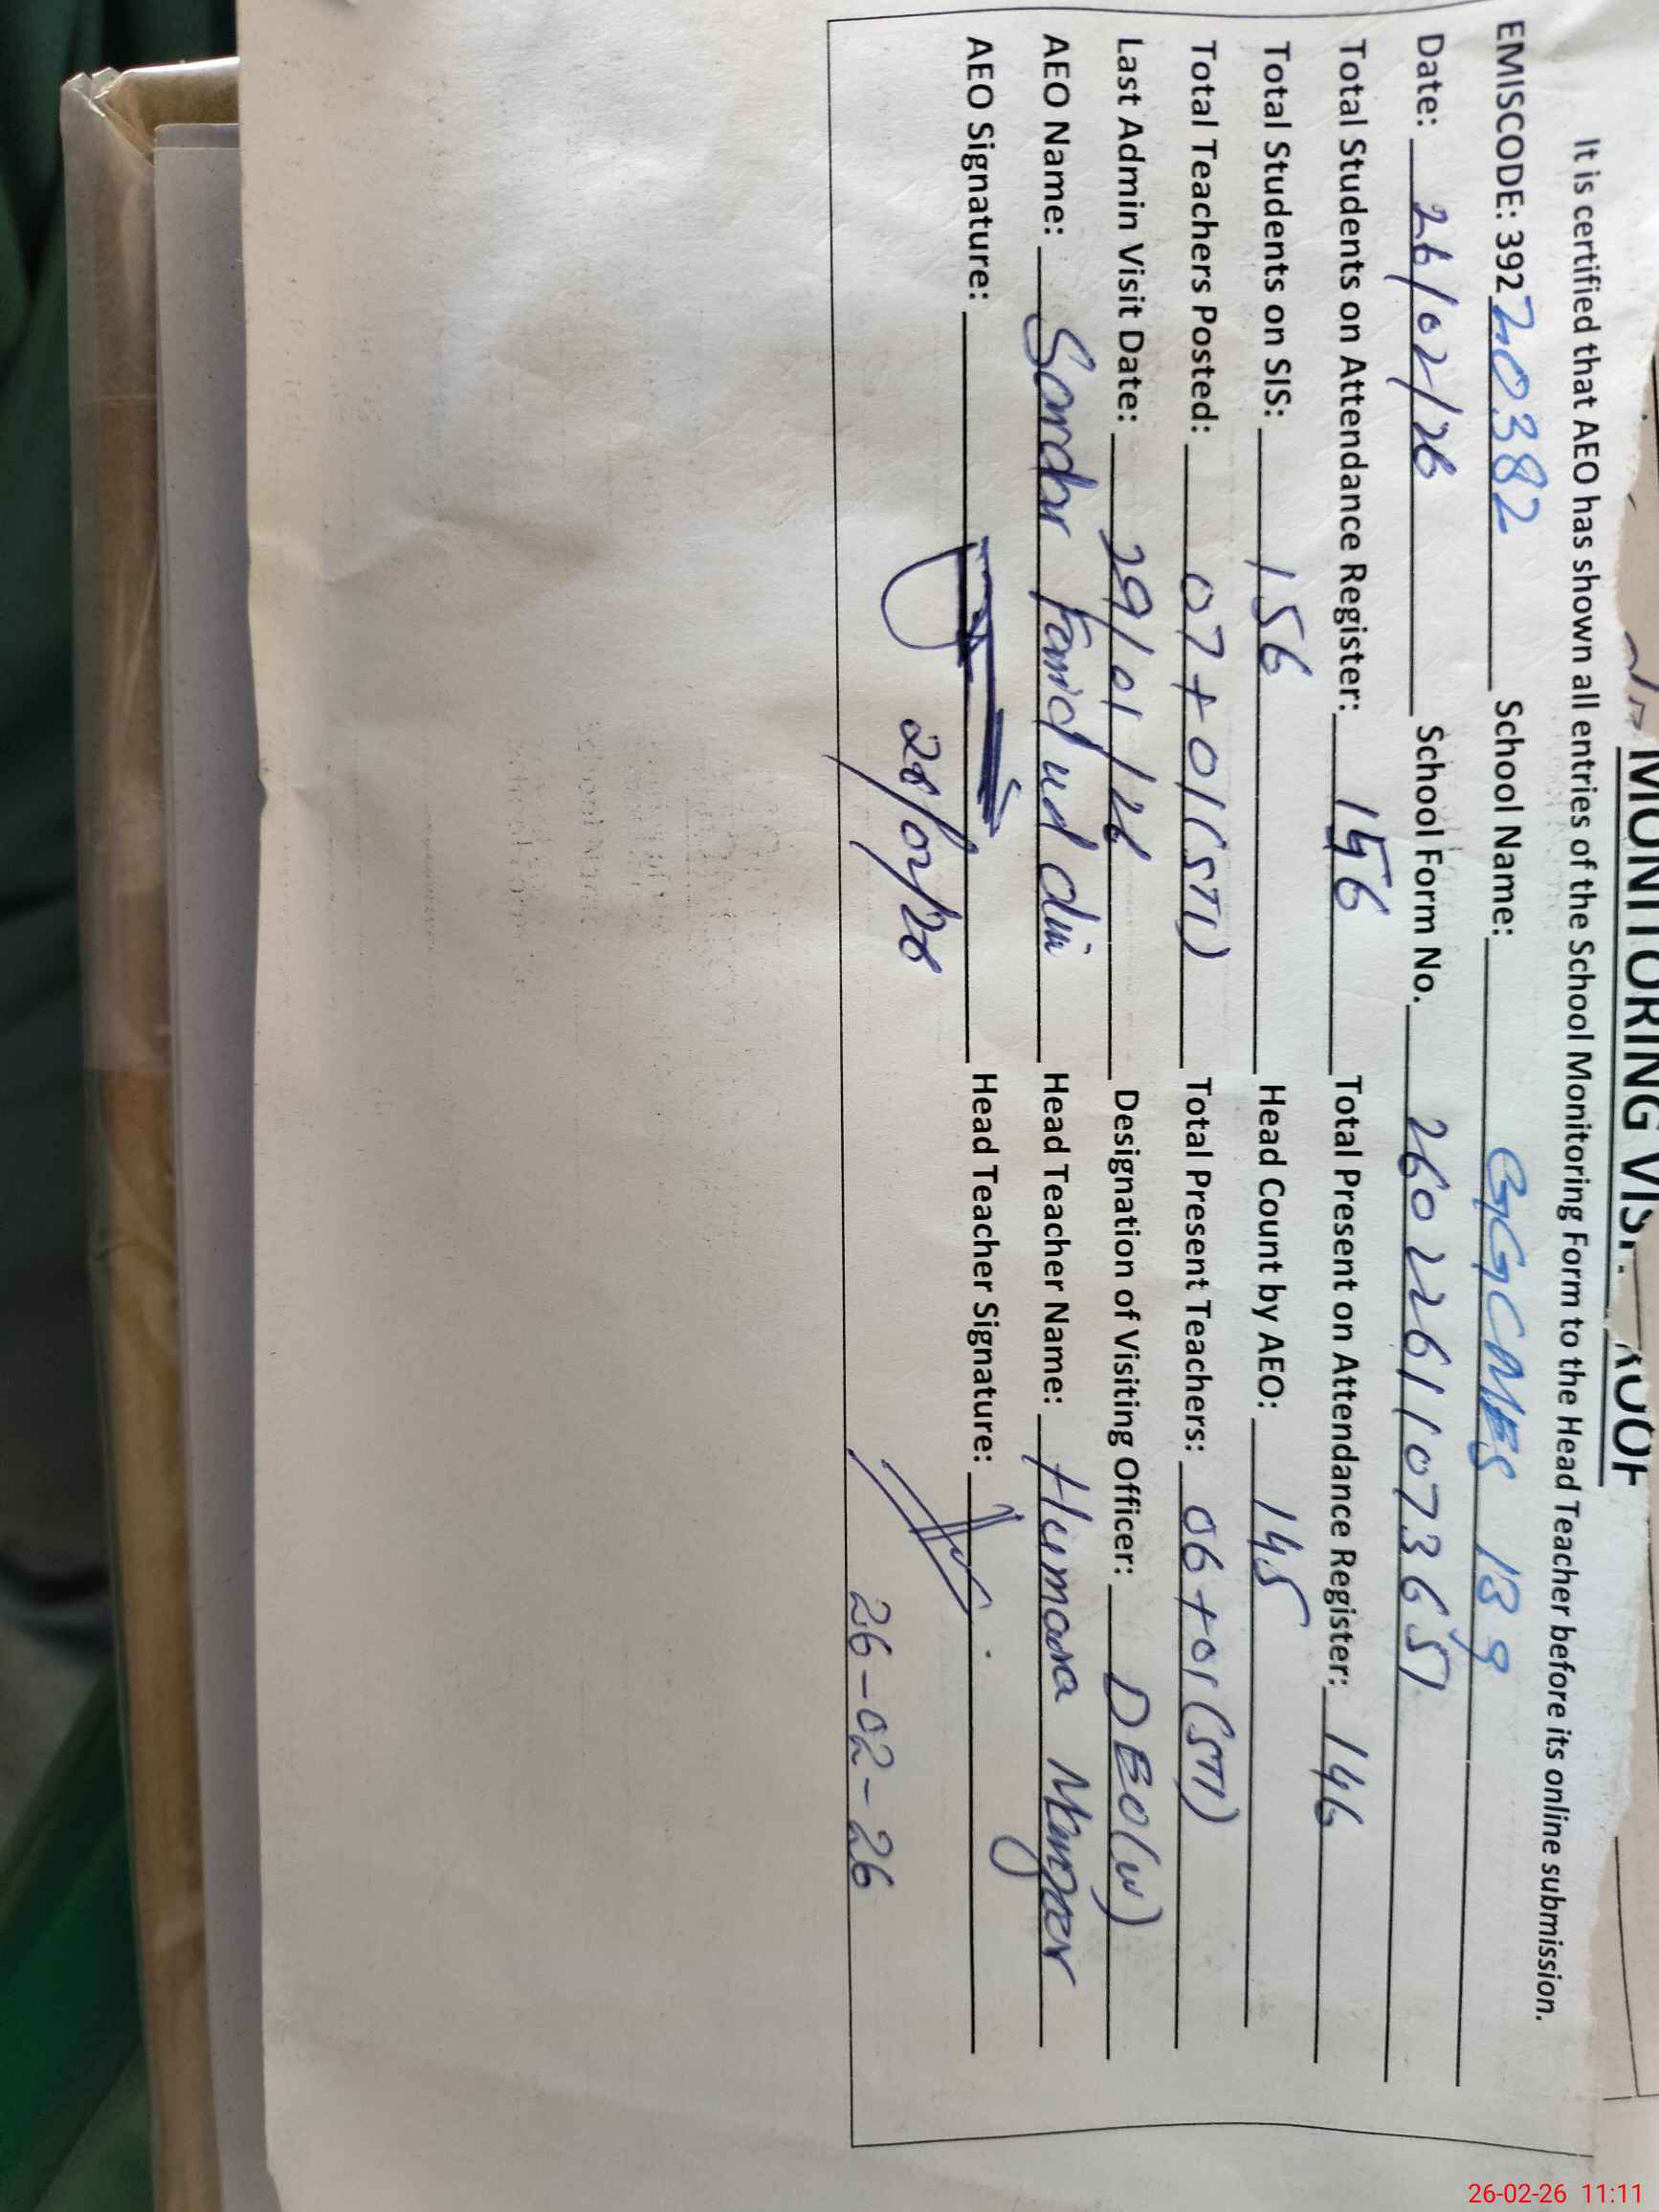 MONITORING VIS
It is certified that AEO has shown all entries of the School Monitoring Form to the Head Teacher before its online submission.
EMISCODE: 39220382 School Name: GGCMES 189
Date: 26/02/26 School Form No. 26022611073651
Total Students on Attendance Register: 156 Total Present on Attendance Register: 146
Total Students on SIS: 156 Head Count by AEO: 145
Total Teachers Posted: 07+01(STI) Total Present Teachers: 06+01(STI)
Last Admin Visit Date: 29/01/26 Designation of Visiting Officer: DEO(W)
AEO Name: Sardar Farid ud din Head Teacher Name: Humara
AEO Signature: Head Teacher Signature:
26/02/26 26-02-26
26-02-26 11:11